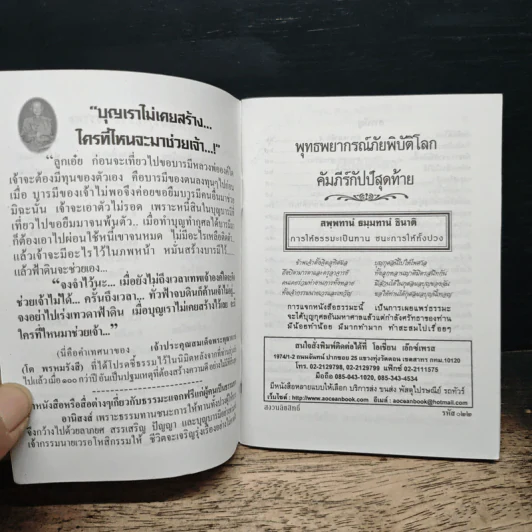 “บุญเราไม่เคยสร้าง...
ใครที่ไหนจะมาช่วยเจ้า...!”
“ลูกเอ๋ย ก่อนจะเที่ยวไปขอบารมีหลวงพ่อองค์ใด
เจ้าจะต้องมีทุนของตัวเอง คือบารมีของตนลงทุนไปก่อน
เมื่อ บารมีของเจ้าไม่พอจึงค่อยขอยืมบารมีคนอื่นมาช่วย
มิฉะนั้น เจ้าจะเอาตัวไม่รอด เพราะหนี้สินในบุญบารมีที่
เที่ยวไปขอยืมมาจนพ้นตัว.. เมื่อทำบุญทำกุศลได้บารมีมา
ก็ต้องเอาไปผ่อนใช้หนี้เขาจนหมด ไม่มีอะไรเหลือติดตัว
แล้วเจ้าจะมีอะไรไว้ในภพหน้า หมั่นสร้างบารมีไว้
แล้วฟ้าดินจะช่วยเอง...
“จงจำไว้นะ... เมื่อยังไม่ถึงเวลาเทพเจ้าองค์ใด
ช่วยเจ้าไม่ได้... ครั้นถึงเวลา... ทั่วฟ้าจบดินก็ต้านเจ้าไม่อยู่
จงอย่าไปเร่งเทวดาฟ้าดิน เมื่อบุญเราไม่เคยสร้างไว้เลย จะมี
ใครที่ไหนมาช่วยเจ้า...”
(นี่คือคำเทศนาของ เจ้าประคุณสมเด็จพระพุฒาจารย์
(โต พรหมรังสี) ที่ได้โปรดชี้ธรรมไว้ในนิมิตหลังจากที่ท่าน
ไปแล้วเมื่อ ๑๐๐ กว่าปี อันเป็นปฐมเหตุที่ต้องสร้างความดี
หนังสือหรือสื่อต่างๆเกี่ยวกับธรรมะแจกฟรีแก่ผู้คนเป็นธรรมทาน
อานิสงส์ เพราะธรรมทานชนะการให้ทานทั้งปวง
กว้างไปด้วยลาภยศ สรรเสริญ ปัญญา และบุญบารมี
เจ้ากรรมนายเวรอโหสิกรรมให้ ชีวิตจะเจริญรุ่งเรือง
พุทธพยากรณ์ภัยพิบัติโลก
คัมภีร์กัปป์สุดท้าย
สพฺพทานํ ธมฺมทานํ ชินาติ
การให้ธรรมะเป็นทาน ชนะการให้ทั้งปวง
การแจกหนังสือธรรมะนี้ เป็นการเผยแพร่ธรรมะ
จะได้บุญกุศลอันมหาศาลแล้วแต่กำลังศรัทธาของท่าน
มีน้อยทำน้อย มีมากทำมาก ทำสะสมไปเรื่อยๆ
สนใจสั่งพิมพ์ติดต่อได้ที่ โอเชี่ยน เอ๊กซ์เพรส
1974/1-2 ถนนจันทน์ ปากซอย 25 แขวงทุ่งวัดดอน เขตสาทร กทม.10120
โทร. 02-2129798, 02-2113758 แฟ็กซ์ 02-2111575
มือถือ 085-043-1029, 085-343-4534
มีหนังสือหลายแบบให้เลือก บริการส่ง ขนส่ง พัสดุไปรษณีย์ รถทัวร์
เว็บไซต์ : http://www.aoceanbook.com อีเมล์ : aoceanbook@hotmail.com
สงวนลิขสิทธิ์
รหัส ๐๒๒